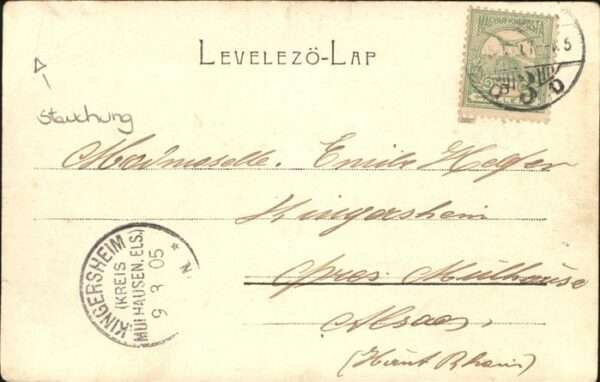 LEVELEZŐ-LAP
MAGYAR KIR. POSTA
Stauchung
Mademoiselle. Emilie Hegfer
Kingersheim
près Mulhouse
Alsace
(Haut Rhin)
KINGERSHEIM
(KREIS
MÜLHAUSEN, ELS.)
9 3 05
* N